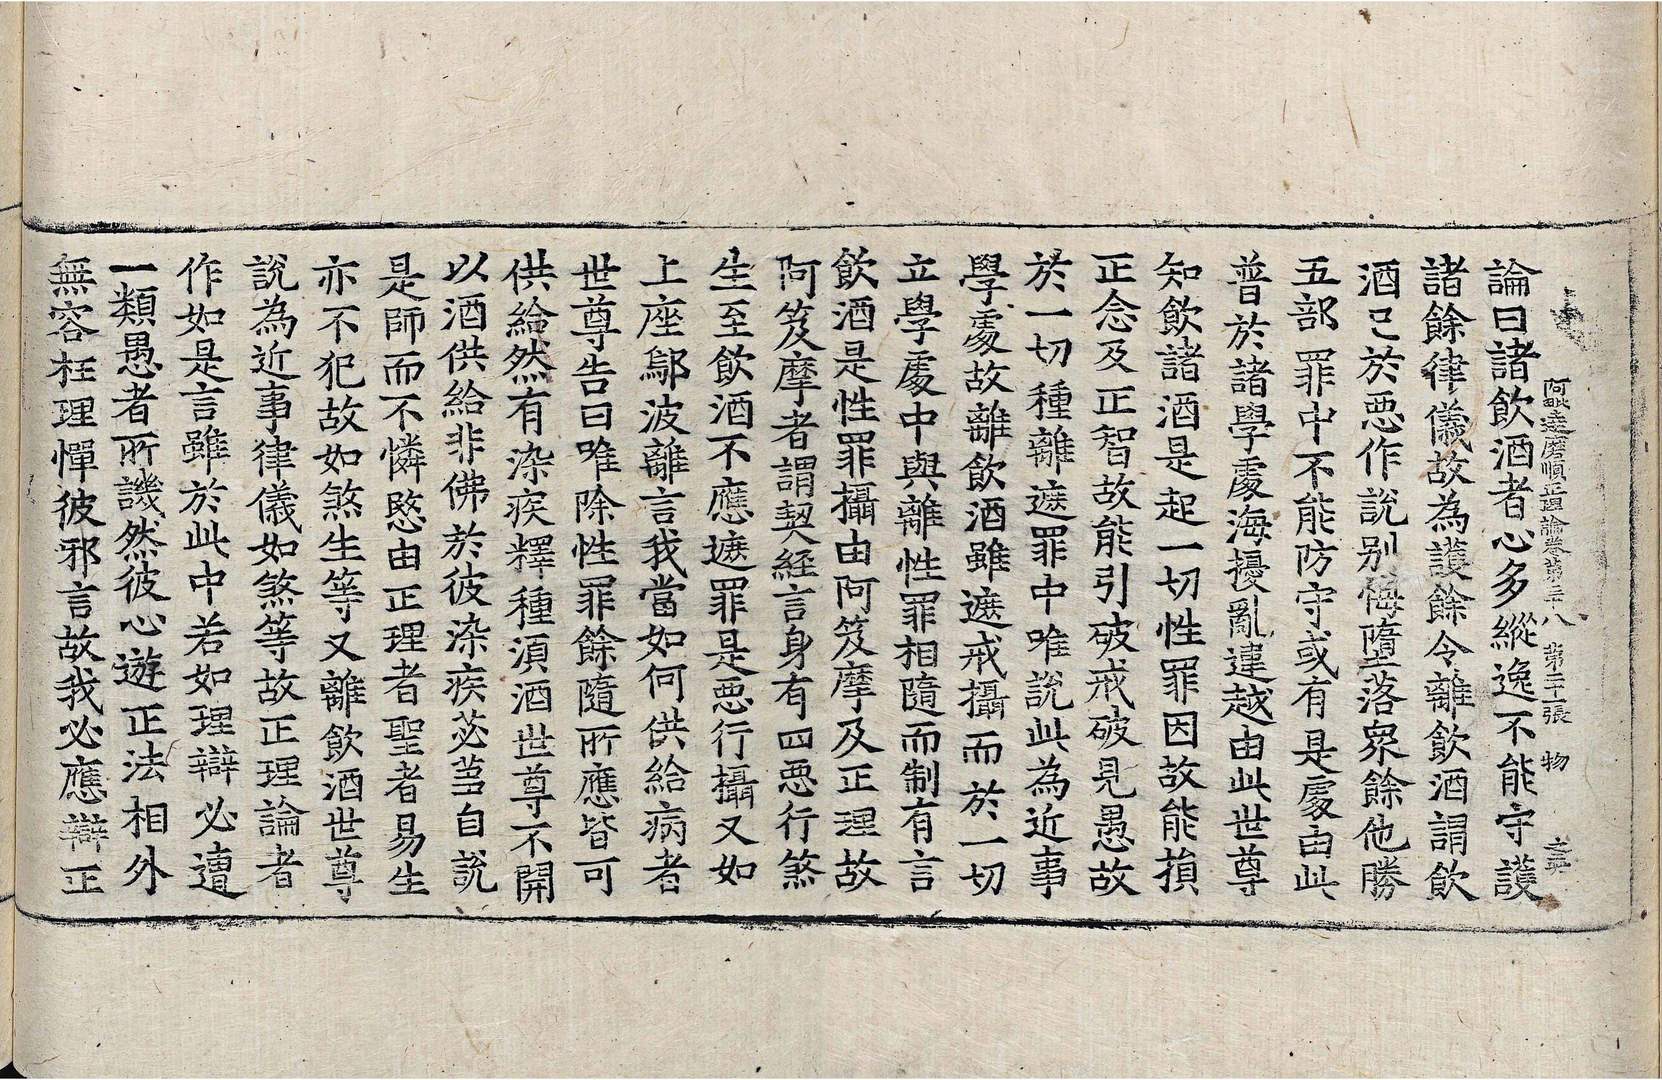 阿毗達磨順正理論卷第三十八 第二十一張 物
論曰諸飲酒者心多縱逸不能守護
諸餘律儀故為護餘令離飲酒謂飲
酒已於惡作說別悔墮落眾餘他勝
五部罪中不能防守或有是處由此
普於諸學處海擾亂違越由此世尊
知飲諸酒是起一切性罪因故能損
正念及正智故能引破戒破見愚故
於一切種離遮罪中唯說此為近事
學處故離飲酒雖遮戒攝而於一切
立學處中與離性罪相隨而制有言
飲酒是性罪攝由阿笈摩及正理故
阿笈摩者謂契經言身有四惡行煞
生至飲酒不應遮罪是惡行攝又如
上座鄔波離言我當如何供給病者
世尊告曰唯除性罪餘隨所應皆可
供給然有染疾釋種須酒世尊不開
以酒供給非佛於彼染疾苾芻自說
是師而不憐愍由正理者聖者易生
亦不犯故如煞生等又離飲酒世尊
說為近事律儀如煞等故正理論者
作如是言雖於此中若如理辯必遭
一類愚者所譏然彼心遊正法相外
無容枉理憚彼邪言故我必應辯正